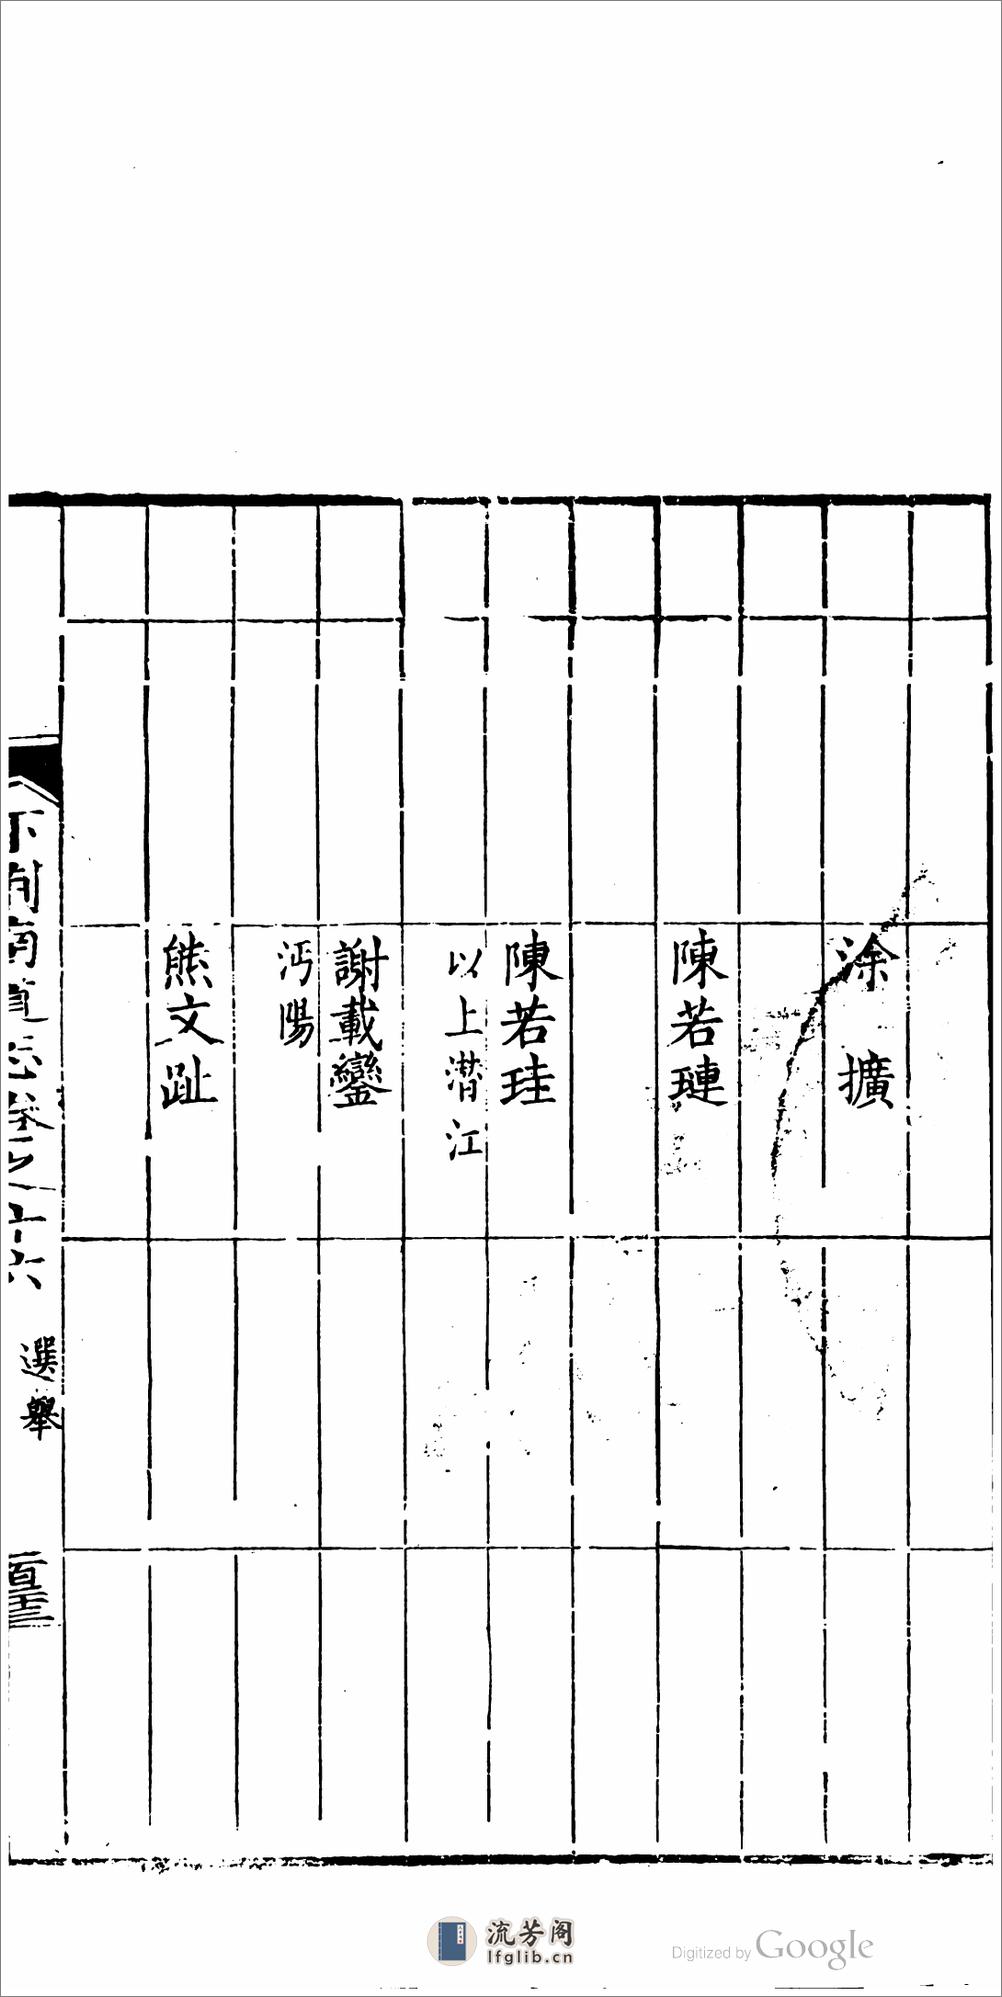 涂擴
陳若璉
陳若珪
以上潛江
謝載鑾
沔陽
熊文趾
下荊南道志卷之十六
選舉
百壬三
流芳阁
lfglib.cn
Digitized by Google